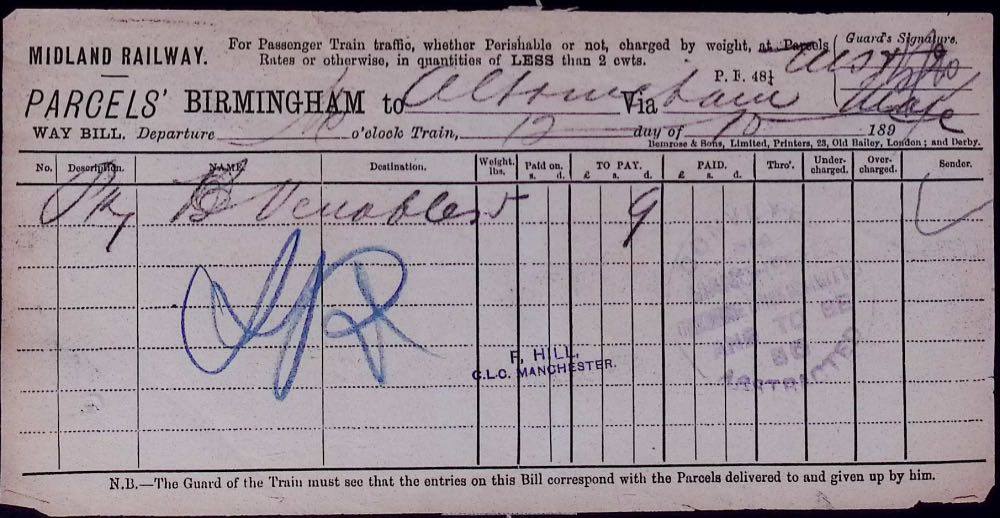 MIDLAND RAILWAY.
For Passenger Train traffic, whether Perishable or not, charged by weight, at Parcels
Rates or otherwise, in quantities of LESS than 2 cwts.
Guard's Signature.
P. F. 48½
PARCELS' BIRMINGHAM to Altrincham Via
WAY BILL, Departure o'clock Train, 12 day of 10 189
Bemrose & Sons, Limited, Printers, 23, Old Bailey, London; and Derby.
No. Description. NAME. Destination. Weight. lbs. Paid on. s. d. TO PAY. £ s. d. PAID. £ s. d. Thro'. Under-charged. Over-charged. Sender.
Pkg B Venables 5 9
F. HILL,
C.L.C. MANCHESTER.
TO BE
N.B.—The Guard of the Train must see that the entries on this Bill correspond with the Parcels delivered to and given up by him.